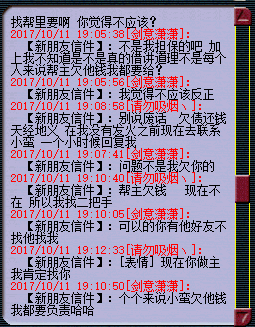 找帮里要啊 你觉得不应该?
2017/10/11 19:05:38[剑意萧萧]:
【新朋友信件】: 不是我担保的吧 加
上我不知道是不是真的借讲道理不是每个
人来说帮主欠他钱我都要给?
2017/10/11 19:05:56[剑意萧萧]:
【新朋友信件】: 我觉得不应该反正
2017/10/11 19:08:58[请勿吸烟丶]:
【新朋友信件】: 别说废话  欠债还钱
天经地义 在我没有发火之前现在去联系
小蛮 一个小时候回复我
2017/10/11 19:07:41[剑意萧萧]:
【新朋友信件】: 问题不是我欠你的
2017/10/11 19:10:40[请勿吸烟丶]:
【新朋友信件】: 帮主欠钱   现在不
在 所以我找二把手
2017/10/11 19:10:05[剑意萧萧]:
【新朋友信件】: 可以的你有他好友不
找他找我
2017/10/11 19:12:33[请勿吸烟丶]:
【新朋友信件】: [表情] 现在你做主
我肯定找你
2017/10/11 19:10:50[剑意萧萧]:
【新朋友信件】: 个个来说小蛮欠他钱
我都要负责哈哈